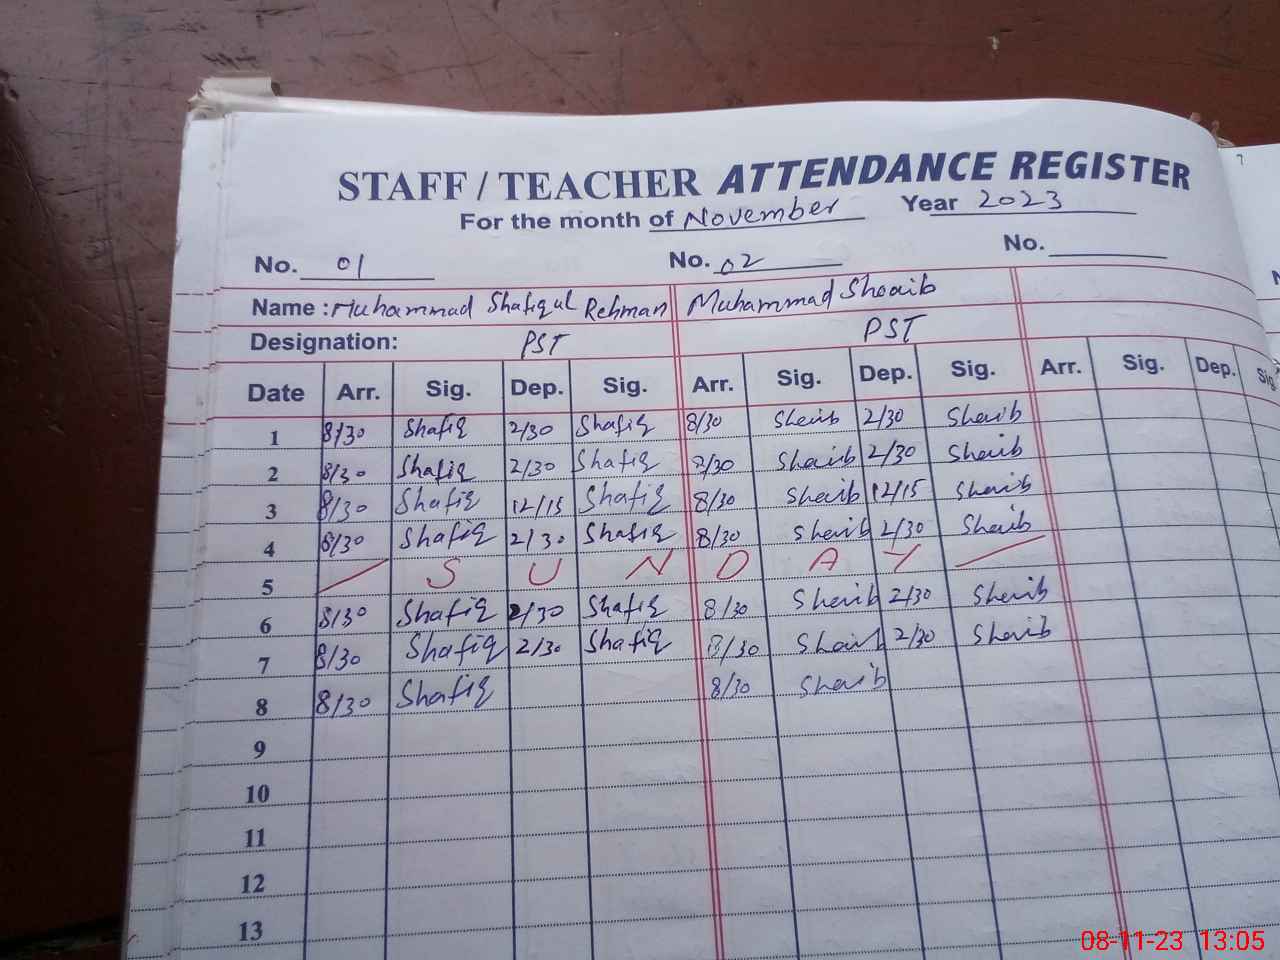 STAFF / TEACHER ATTENDANCE REGISTER
For the month of November Year 2023
No. 01 No. 02 No.
Name : Muhammad Shafiqul Rehman Muhammad Shoaib
Designation: PST PST
Date Arr. Sig. Dep. Sig. Arr. Sig. Dep. Sig. Arr. Sig. Dep. Sig
1 8/30 Shafiq 2/30 Shafiq 8/30 Shoaib 2/30 Shoaib
2 8/30 Shafiq 2/30 Shafiq 8/30 Shoaib 2/30 Shoaib
3 8/30 Shafiq 12/15 Shafiq 8/30 Shoaib 12/15 Shoaib
4 8/30 Shafiq 2/30 Shafiq 8/30 Shoaib 2/30 Shoaib
5 / S U N D A Y /
6 8/30 Shafiq 2/30 Shafiq 8/30 Shoaib 2/30 Shoaib
7 8/30 Shafiq 2/30 Shafiq 8/30 Shoaib 2/30 Shoaib
8 8/30 Shafiq 8/30 Shoaib
9
10
11
12
13
08-11-23 13:05